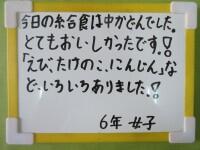 今日の給食は中かどんでした。
とてもおいしかったです!
「えび、たけのこ、にんじん」な
ど、いろいろありました!
6年 女子